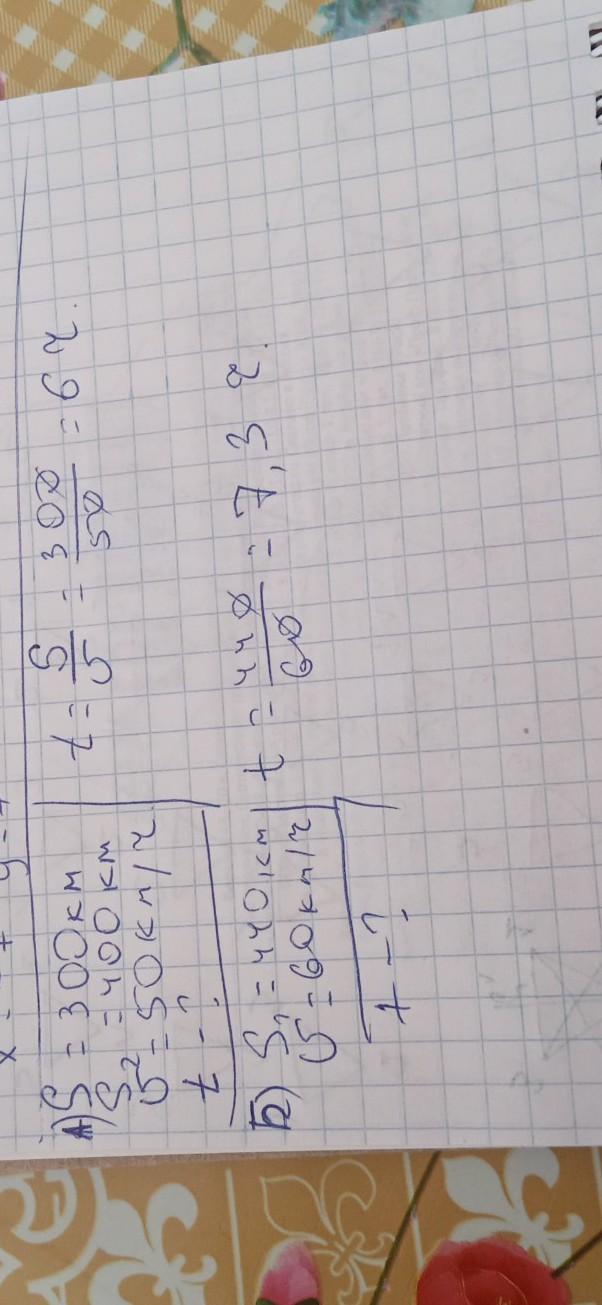 А) S = 300 км
S² = 400 км
υ = 50 км/ч
t - ?
t = S/υ = 300/50 = 6 ч.
Б) S₁ = 440 км
υ = 60 км/ч
t - ?
t = 440/60 = 7,3 ч.